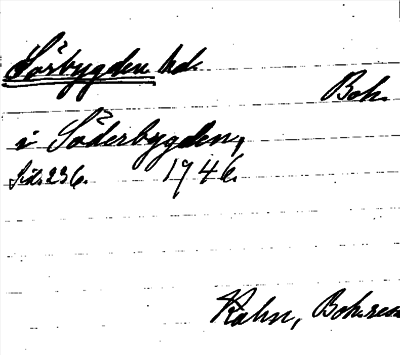 Sörbygden hd.
Boh.
i Söderbygden,
Sid. 236. 1746.
Kalm, Bohuresa